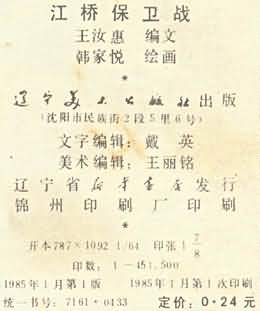 江桥保卫战
王汝惠 编文
韩家悦 绘画
*
辽宁美术出版社出版
(沈阳市民族街2段5里6号)
文字编辑：戴 英
美术编辑：王丽铭
辽宁省新华书店发行
锦州印刷厂印刷
*
开本787×1092 1/64 印张1 7/8
印数：1—451,500
1985年1月第1版 1985年1月第1次印刷
统一书号：7161·0433 定价：0·24元